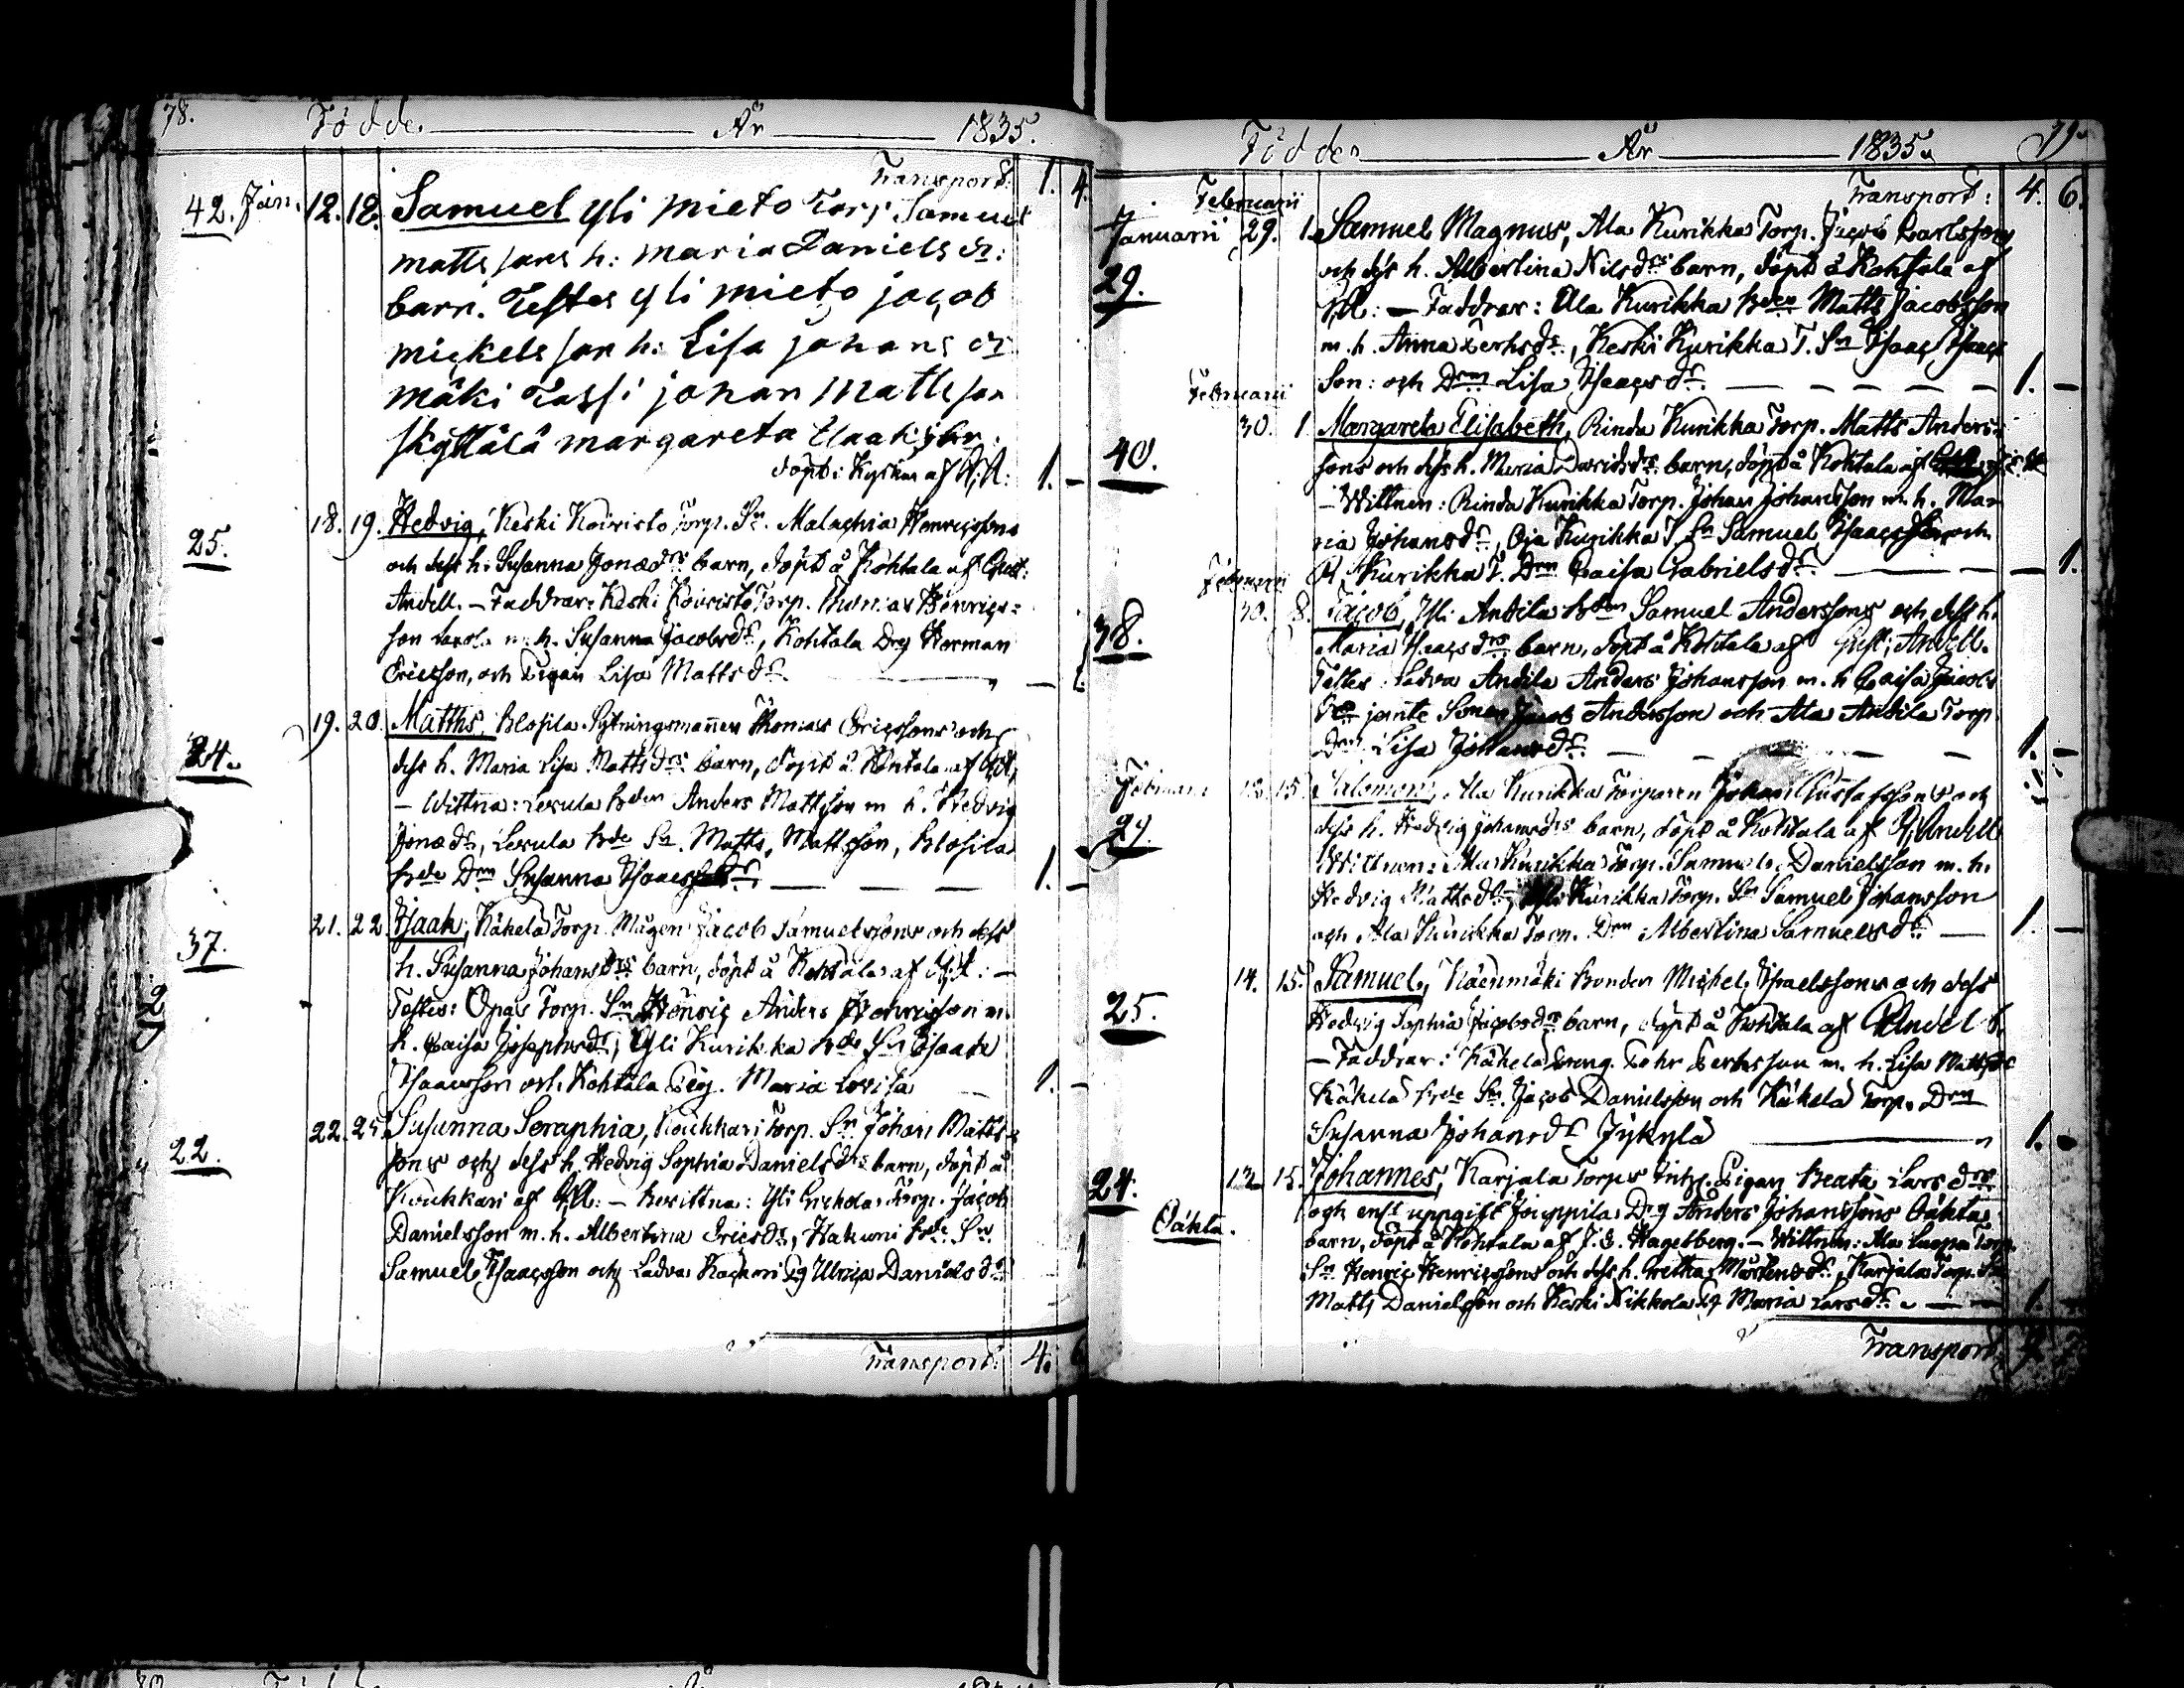 78. Födde. År 1835.
Transport: 1. 4.
42. Jan. 12. 18. Samuel Yli Mieto Torp Samuel
matts sons h: maria Daniels dr:
barn. Testes Yli mieto jacob
mickels son h: Lisa johans dr
mäki Tassi johan Matts son
skyttälä margareta
döpt i Kyrkan af A: 1. –
25. 18. 19. Hedvig, Keski Koivisto Torp. Sn. Malachia Henricssons
och dess h: Susanna Jonædrs barn, döpt å Kohtala af Gust:
Andell. – Faddrar: Keski Koivisto Torp. Thomas Henrics-
son m. h. Susanna Jacobsdr, Kohtala Drg Herman
Ericsson, och Pigan Lisa Mattsdr. – 1.
24. 19. 20. Matths, Blosila Sytningsmannen Thomas Ericssons och
dess h. Maria Lisa Mattsdrs barn, döpt å Kohtala af
– Wittna: Levula Bden Anders Mattsson m h. Hedvig
Jonædr, Levula Bde Sn. Matts Mattsson, Blosila
Bde Drn Susanna Isaacsdr. 1. –
37. 21. 22. Isaak, Kähelä Torp. Mågen Jacob Samuelssons och dess
h. Susanna Johansdrs barn, döpt å Kohtala af G:A: –
Testes: Opas Torp. Sn Henric Anders Henricsson m
h. Caisa Josephsdr, Yli Kurikka Bde Sn Isaac
Isaacsson och Kohtala Pig. Maria Lovisa 1. –
22. 22. 25. Susanna Seraphia, Koukkari Torp. Sn Johan Matts-
sons och dess h. Hedvig Sophia Danielsdrs barn, döpt å
Koukkari af G:A: – Bevittna: Yli Torp. Jacob
Danielsson m. h. Albertina Ericsdr, Hakuni Bde Sn.
Samuel Isaacsson och Ladva Kackori Pg Ulrica Danielsdr 1
Transport: 4. 6
Födde År 1835. 79.
Februarii Transport: 4. 6.
Januarii 29. 1. Samuel Magnus, Ala Kurikka Torp. Jacob Carlssons
29. och dess h. Albertina Nilsdrs barn, döpt å Kohtala af
G:A: – Faddrar: Ala Kurikka Bden Matts Jacobsson
m. h. Anna, Keski Kurikka T. Sn Isaac Isaacs
son: och Drn Lisa Isaacsdr. 1. –
Februarii
30. 1 Margareta Elisabeth, Rinda Kurikka Torp. Matts Anders-
40. sons och dess h. Maria Davidsdrs barn, döpt å Kohtala af
– Wittnen: Rinda Kurikka Torp. Johan Johansson m. h. Ma-
ria Johansdr, Oja Kurikka T. Sn Samuel Isaacsson och
R. Kurikka T. Drn Caisa Gabrielsdr. – 1.
Februarii
38. 30. 8. Jacob, Yli Andila Bden Samuel Anderssons och dess h.
Maria Isaacsdrs barn, döpt å Kohtala af Gust; Andell.
Testes Ladva Andila Anders Johansson m. h Caisa Jacobs
dr jemte Sonen Jacob Andersson och Ala Andila Torp
Drn. Lisa Johansdr. 1. –
Februarii 13. 15. Salomon, Ala Kurikka Torparen Johan Gustafssons och
29. dess h. Hedvig Johansdrs barn, döpt å Kohtala af G; Andell
Wittnen: Ala Kurikka Torp. Samuel Danielsson m. h.
Hedvig Mattsdr, Yli Kurikka Torp. Sn Samuel Johansson
och Ala Kurikka Torp. Drn Albertina Samuelsdr 1. –
25. 14. 15. Samuel, Käenmäki Bonden Michel Isaelssons och dess
Hedvig Sophia Jacobsdrs barn, döpt å Kohtala af GAndell.
– Faddrar: Kähelä m. h. Lisa Mattsdr
Kähelä Bde Sn. Jacob Danielsson och Kähelä Torp. Drn
Susanna Johansdr Jykylä 1.
24. 12. 15. Johannes, Karjala Torps Inhys. Pigan Beata Larsdrs
Oähta. och enl uppgift Joippila Drg Anders Johanssons Oähta
barn, döpt å Kohtala af J. E. Hagelberg. – Wittnen: Ala Torp.
Sn Henric Henricssons och dess h. Gretha Mårtensdr, Karjala Torp. Sn
Matts Danielsson och Keski Nikkola Pg Maria Larsdr. 1.
Transport: 7